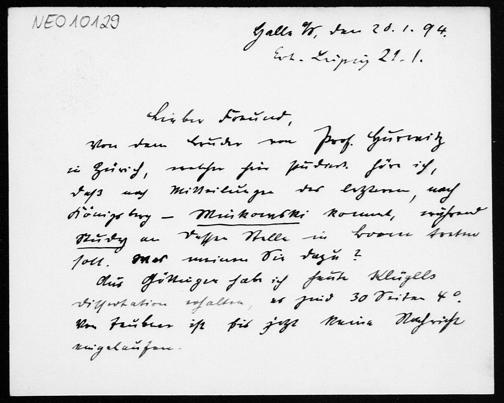 NEO10129
Halle a/S, den 20.1.94.
Erh. Leipzig 21.1.
Lieber Freund,
Von dem Bruder von Prof. Hurwitz
in Zürich, welcher hier studiert, höre ich,
daß nach Mitteilungen des letzteren, nach
Königsberg – Minkowski kommt, während
Study an dessen Stelle in Bonn treten
soll. Was meinen Sie dazu?
Aus Göttingen hab ich heute Klügels
Dissertation erhalten, es sind 30 Seiten 4°.
Von Teubner ist bis jetzt keine Nachricht
eingelaufen.